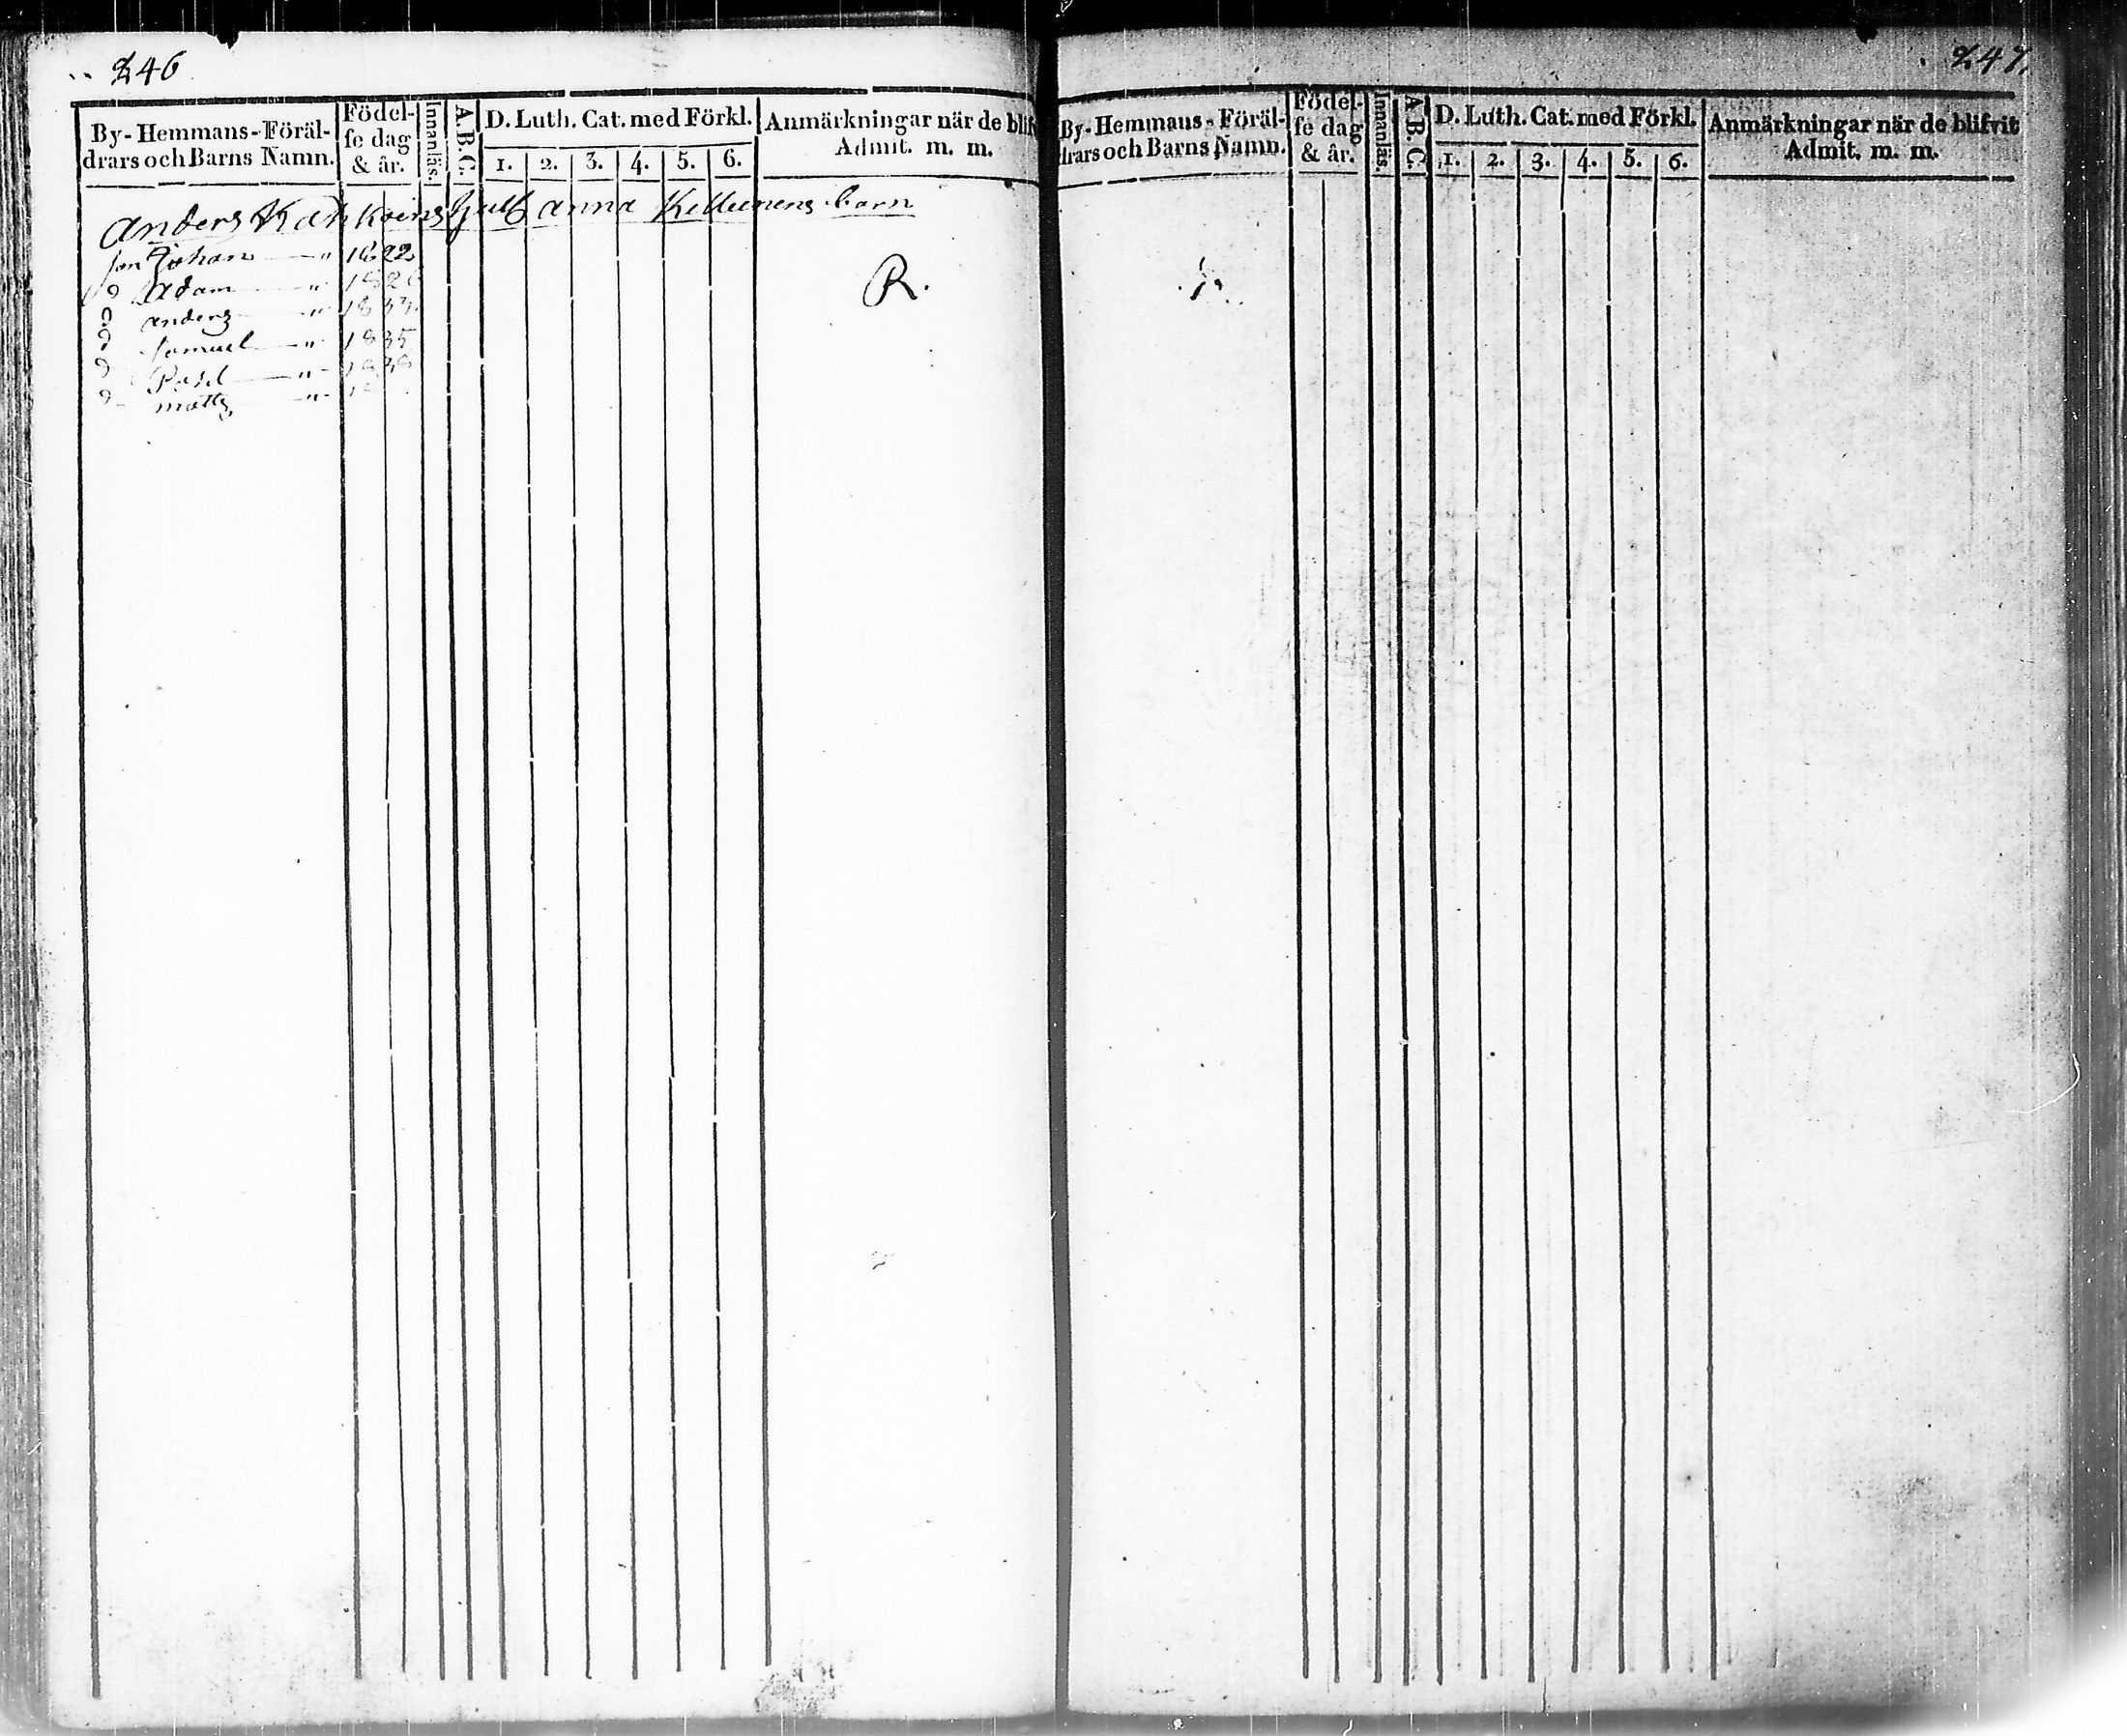 246
By-Hemmans-Föräl-
drars och Barns Namn.
Födel-
se dag
& år.
Innanläs.
A.B.C.
D. Luth. Cat. med Förkl.
1. 2. 3. 4. 5. 6.
Anmärkningar när de blifv
Admit. m. m.
Anders anna Kellunens barn
son Johan — " 1822
d Adam — "
d anders — " 1833
d samuel — " 1835
d — "
d matts — "
R.
247.
By-Hemmans-Föräl-
drars och Barns Namn.
Födel-
se dag
& år.
Innanläs.
A.B.C.
D. Luth. Cat. med Förkl.
1. 2. 3. 4. 5. 6.
Anmärkningar när de blifvit
Admit. m. m.